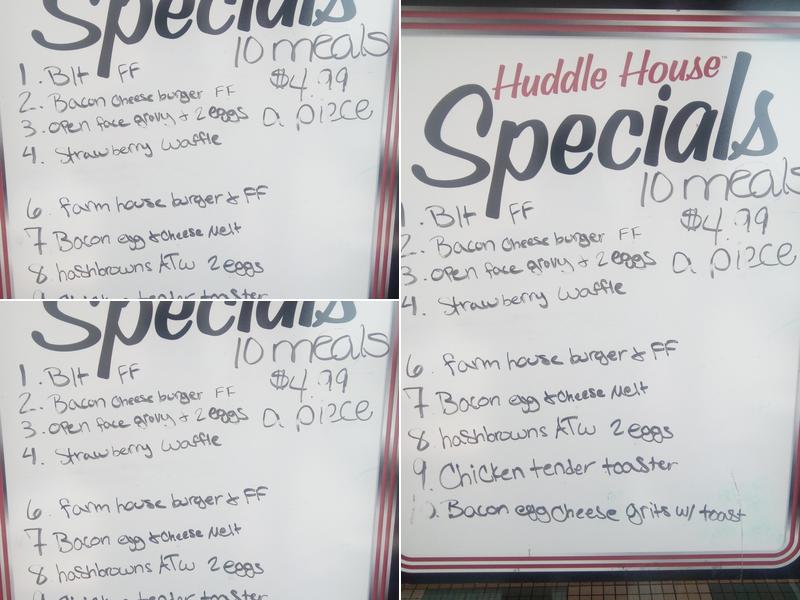 Specials
10 meals
$4.99
a piece
1. Blt FF
2. Bacon Cheese burger FF
3. open face grovy + 2 eggs
4. Strawberry Waffle
6. farm house burger & FF
7 Bacon egg & Cheese Melt
8 hashbrowns ATW 2 eggs
9 Chicken tender toaster
Specials
10 meals
$4.99
a piece
1. Blt FF
2. Bacon Cheese burger FF
3. open face grovy + 2 eggs
4. Strawberry Waffle
6. farm house burger & FF
7 Bacon egg & Cheese Melt
8 hashbrowns ATW 2 eggs
9 Chicken tender toaster
Huddle House™
Specials
10 meals
$4.99
a piece
1. Blt FF
2. Bacon Cheese burger FF
3. open face grovy + 2 eggs
4. Strawberry Waffle
6. farm house burger & FF
7 Bacon egg & Cheese Melt
8 hashbrowns ATW 2 eggs
9. Chicken tender toaster
). Bacon egg cheese grits w/ toast